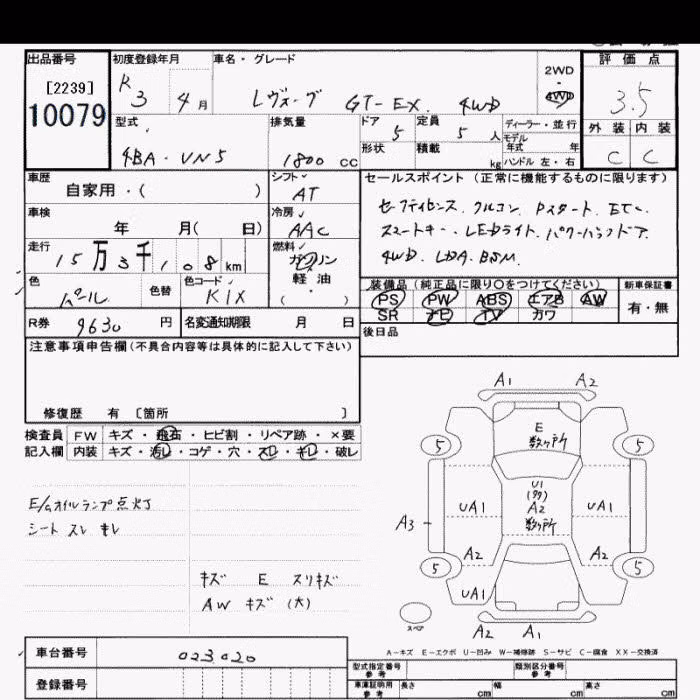 出品番号 初度登録年月 車名・グレード 2WD・4WD 評価点
[2239]
10079
R3 4月 レヴォーグ GT-EX. 4WD 3.5
型式 排気量 ドア 定員 ディーラー・並行
4BA-VN5 1800cc 5 5人 モデル年式 年
形状 積載 kg ハンドル 左・右
外装 内装
C C
車歴 シフト セールスポイント (正常に機能するものに限ります)
自家用・( ) AT
車検 冷房
年 月( 日) AAC
セーフティセンス. クルコン. Pスタート. ETC.
スマートキー. LEDライト. パワーバックドア.
4WD. LDA. BSM.
走行 燃料
15万3千108km ガソリン
軽油
・( )
色 色替 色コード
パール K1X
装備品 (純正品に限り○をつけてください) 新車保証書
PS PW ABS エアB AW 有・無
SR ナビ TV カワ
R券 9630円 名変通知期限 月 日
後日品
注意事項申告欄 (不具合内容等は具体的に記入して下さい)
修復歴 有 〔箇所 〕
検査員 FW キズ・飛石・ヒビ割・リペア跡・×要
記入欄 内装 キズ・汚レ・コゲ・穴・スレ・キレ・破レ
E/Gオイルランプ点灯
シート スレ キレ
キズ E スリキズ
AW キズ (大)
A1 A2
E
数ヶ所
5 5
U1
(多)
A2
数ヶ所
UA1 UA1
A3
A2 A2
5 5
UA1
スペア
A2 A1
A-キズ E-エクボ U-凹み W-補修跡 S-サビ C-腐食 XX-交換済
車台番号 023020
登録番号
型式指定番号 参考 類別区分番号 参考
車庫証明用 参考 長さ cm 幅 cm 高さ cm